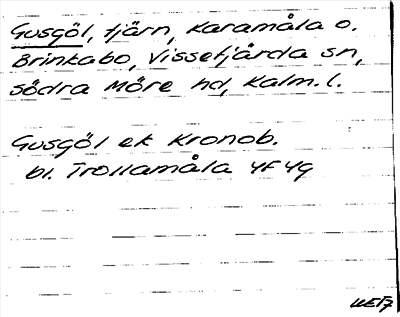 Gusgöl, tjärn, Karamåla o.
Brinkabo, Vissefjärda sn,
Södra Möre hd, Kalm. l.
Gusgöl ek Kronob.
bl. Trollamåla 4F4g